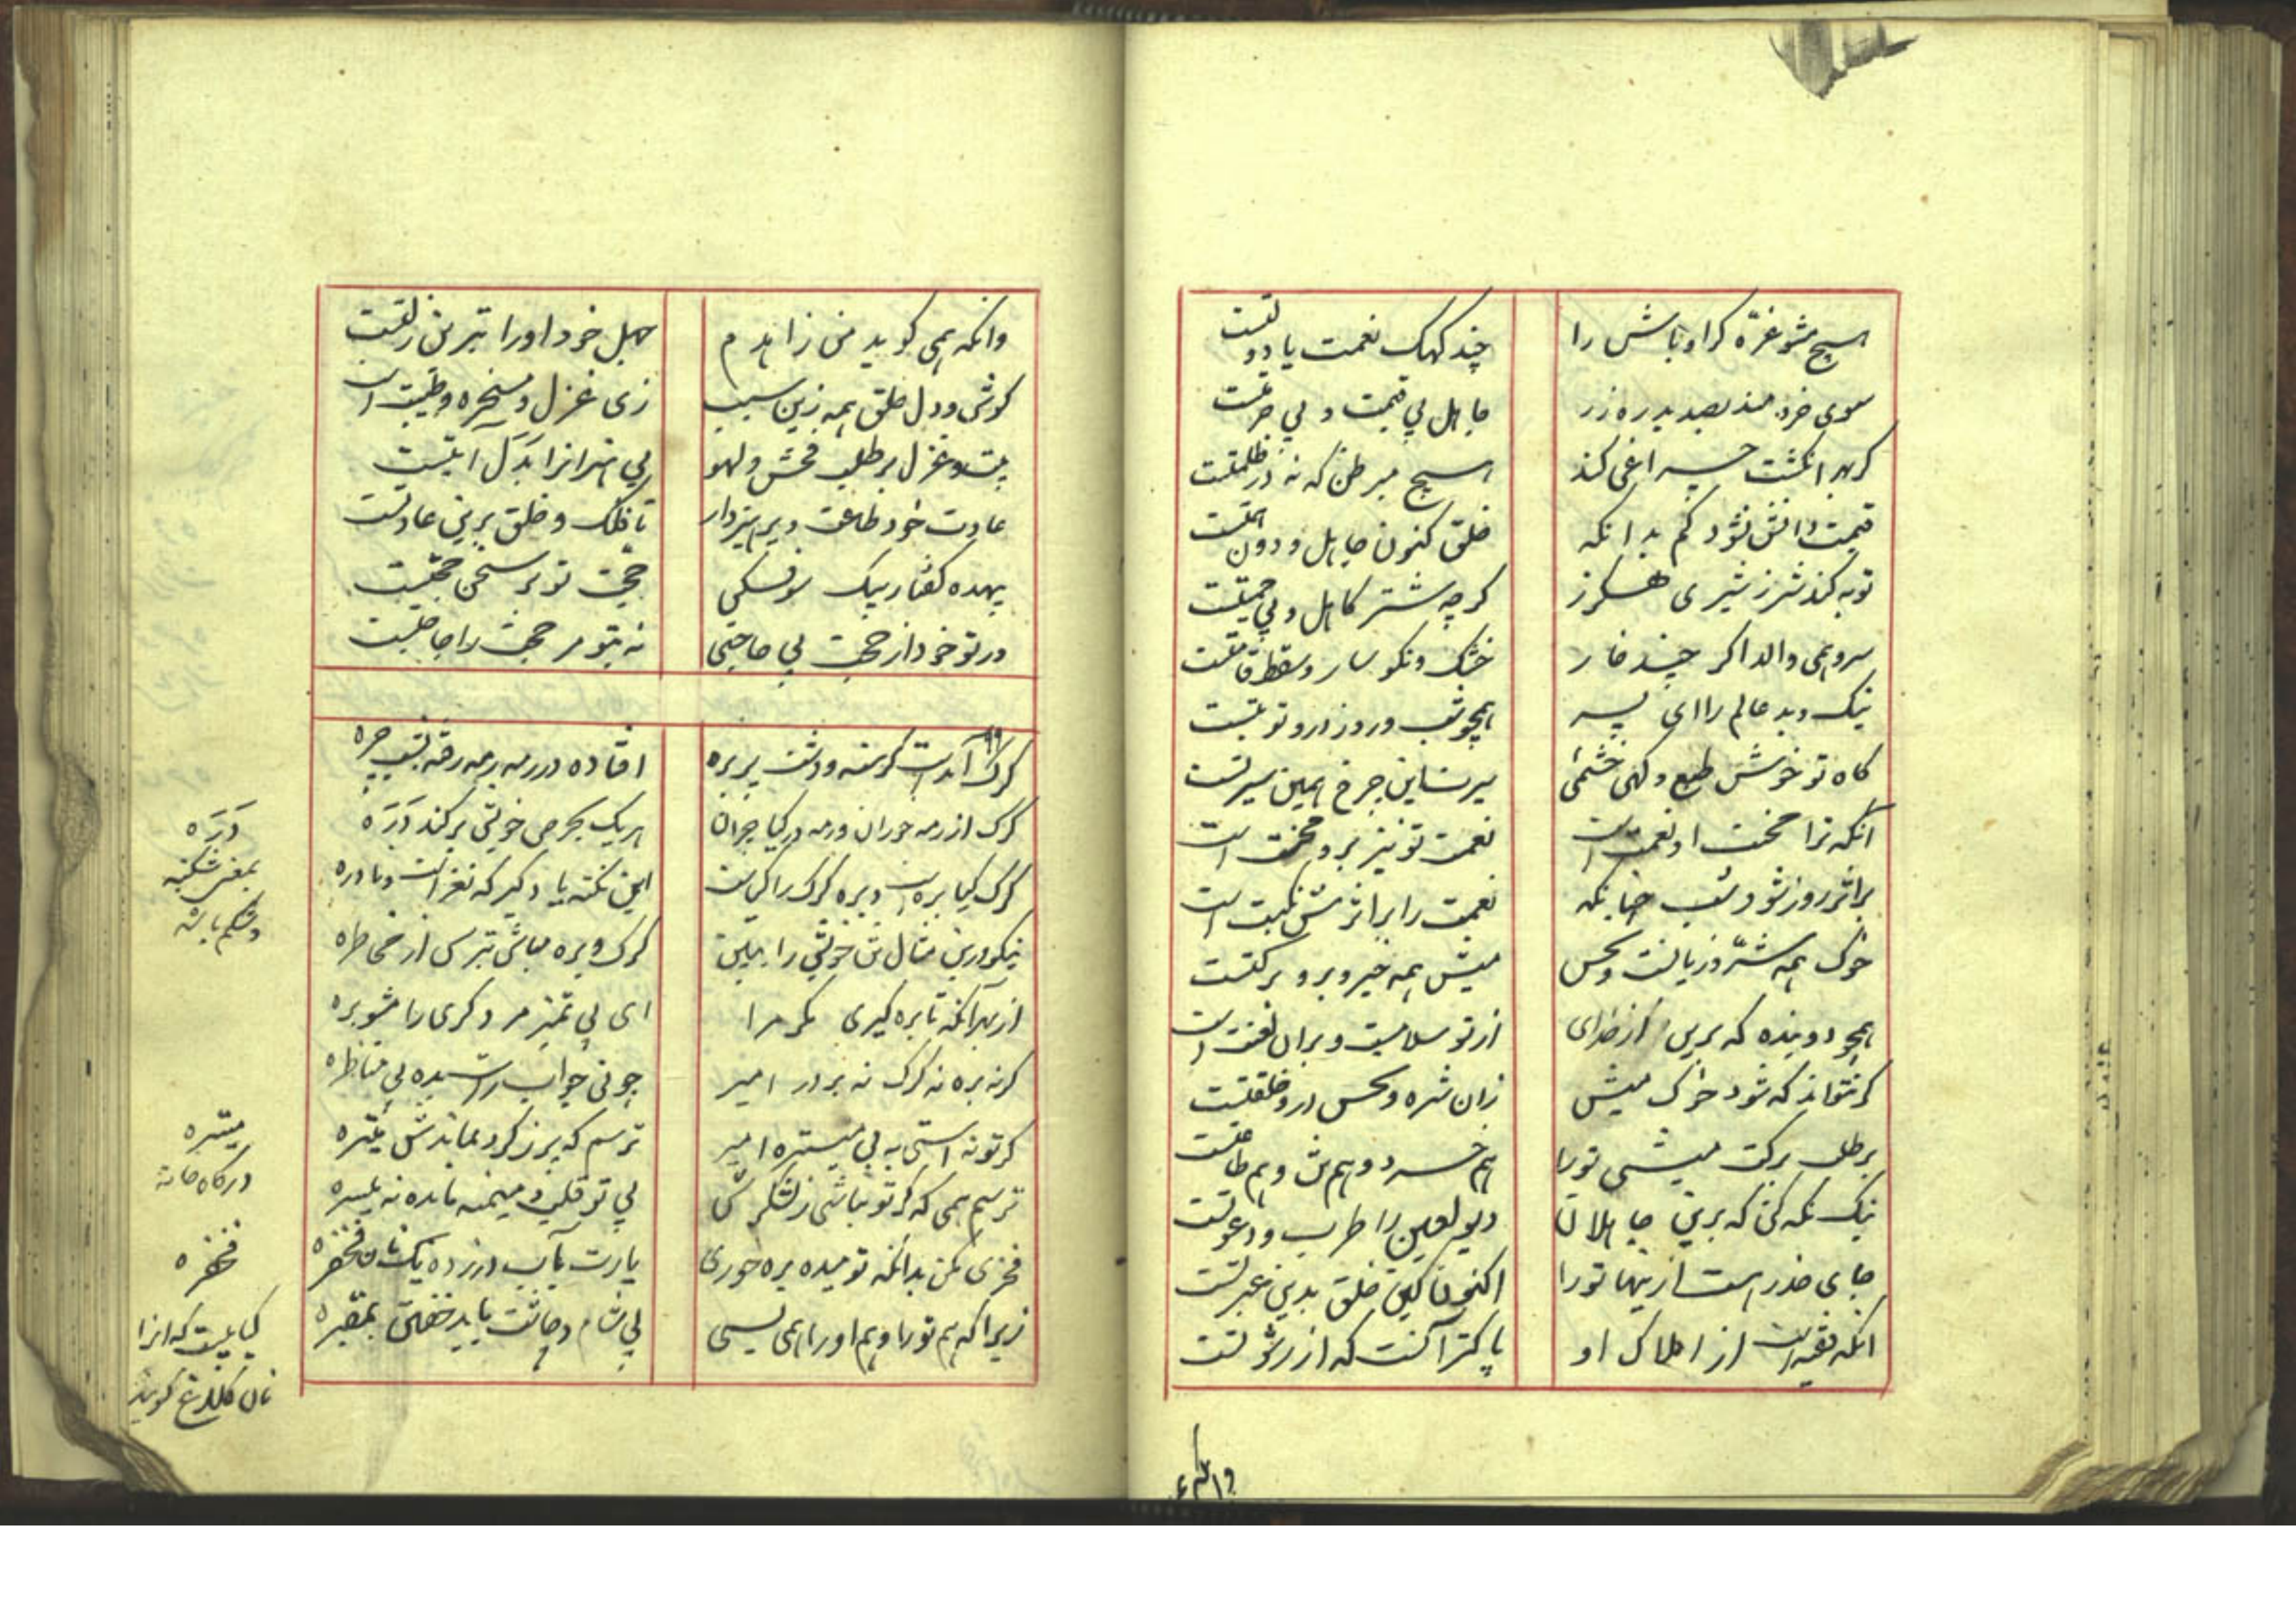 هیچ مشو غرّه کر اوباش را	چند کهک نعمت یا دولتست
سوی خردمند بصد بدره زر	جاهل بی قیمت و بی حرمتست
کر بهر انکشت چراغی کند	هیچ مبر ظن که نه در ظلمتست
قیمت دانش نشود کم بدانکه	خلق کنون جاهل و دون همتست
توبه کند شیر ز شیری هکرز	کرچه شتر کاهل و بی حمیتست
سرو همی والد اکر چند خار	خشک و نکوسار و سقط قامتست
نیک و بد عالم را ای پسر	همچو شب و روز درو نوبتست
کاه تو خوش طبع و کهی خشمئی	سیرت این چرخ همین سیرتست
آنکه ترا محنت او نعمت است	نعمت تو نیز برو محنت است
بر اثر روز شود شب چنانکه	نعمت را بر اثرش نکبت است
خوک همه شرّ و زیانست و نحس	میش همه خیر و بر و برکتست
همچو دوینده که برین از خدای	از تو سلامست و بران لعنت است
کر نتواند که شود خوک میش	زان شره و نحس درو خلقتست
بر طلب برکت میشی تورا	هم خرد و هم تن و هم طاقتست
نیک نکه کن که برین جاهلان	دیو لعین را طرب و دعوتست
جای حذر است ازینها تورا	اکنون کین خلق بدین عبرتست
انکه فقیه است از املاک او	پاکتر آنست که از رشوتست
وانکه همی کوید من زاهدم	جهل خود اورا بتر من زلتست
کوش و دل خلق همه زین سبب	زی غزل و مسخره و طیبت است
بیت و غزل بر طلب فحش و لهو	بی هنرانرا بدل آیتست
عادت خود طاعت و پرهیز دار	تا فلک و خلق برین عادتست
بیهده کفتار بیک سو فکن	حجّت تو بر سخن حجّتست
ور تو خود از حجت بی حاجتی	نه بتو مر حجت را حاجتست
کرک آمدست کرسنه و دشت پر بره	افتاده در رمه رمه رفته بشب چره
کرک از رمه خوران و رمه در کیا چران	هریک بحرص خویش پر کند دَرَه
کرک کیا بره است و بره کرک را کیاست	این نکته یاد کیر که نغز است و نادره
نیکو درین مثال تن خویش را ببین	کرک و بره مباش بترس از مخاطره
از بهر آنکه تا بره کیری مکر مرا	ای بی تمیز مر دکری را مشو بره
کر نه بره نه کرک نه بر در امیر	چونی چواب راست بده بی مناظره
کر تو نه استی به بی میستره امیر	ترسم که پرز کرد بماندش میتره
ترسم همی که کر تو نباشی ز لشکرش	بی تو قلب و میمنه مانده نه میسره
فخری مکن بدانکه تو میده بره خوری	یارت بآب درزده یک نان فخفره
زیرا که هم تورا و هم اورا همی بسی	بی شام و چاشت باید خفتن بمقبره
دَرَه
بمعنی شکنبه
و شکم باشد
میتره
درکاه خانه
فخفره
کیاهیست که انرا
نان کلاغ کویند